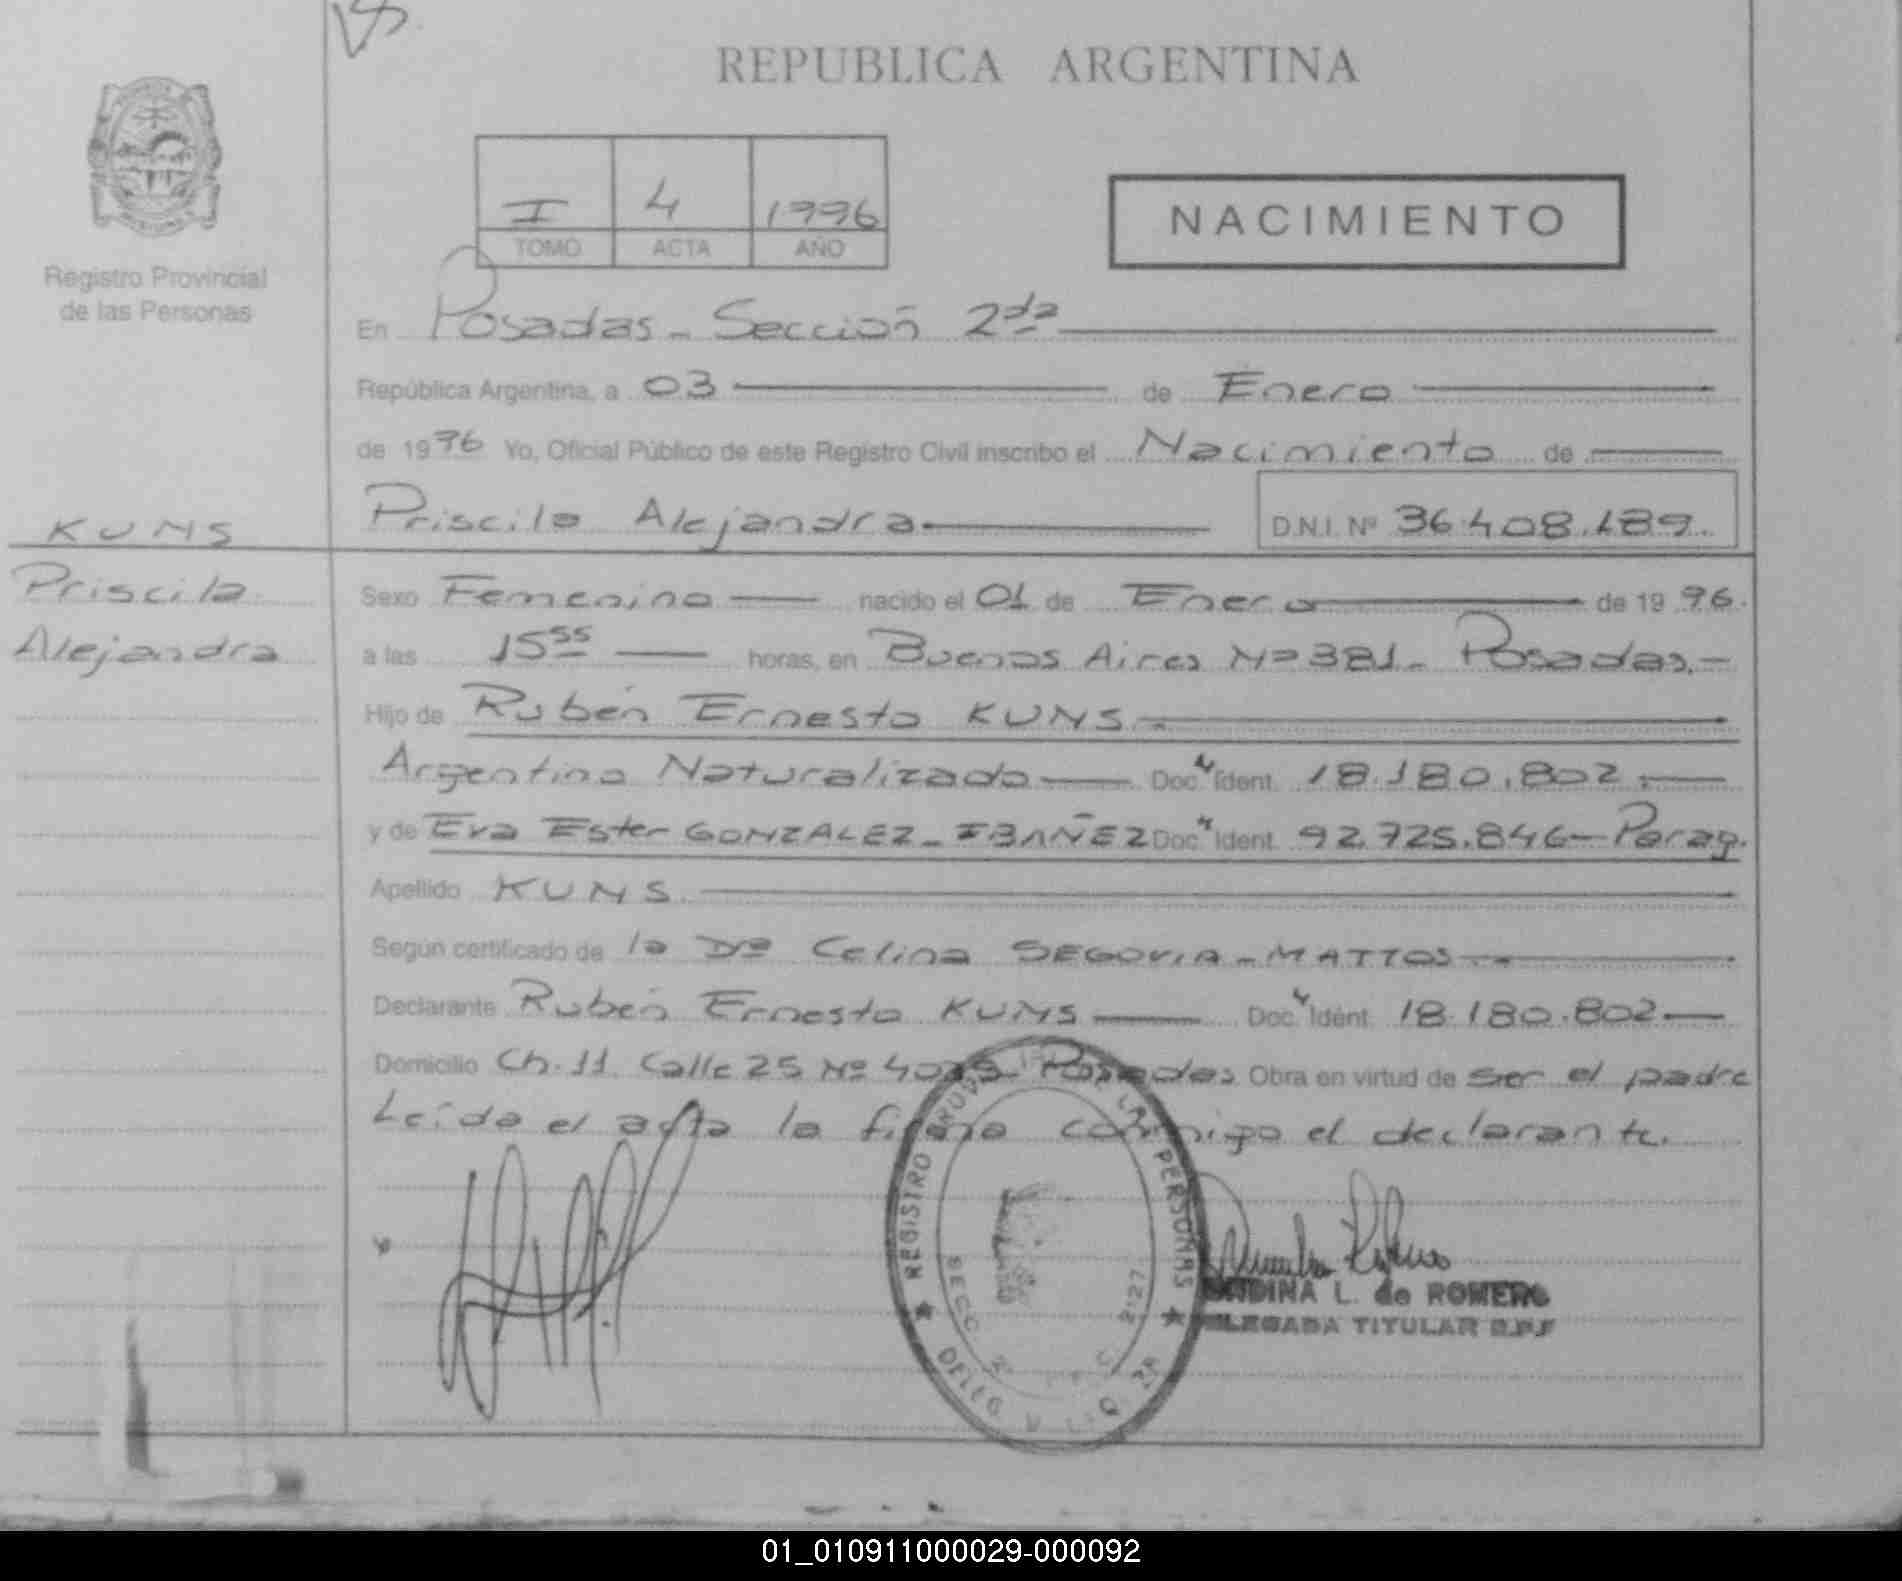 REPUBLICA ARGENTINA
I 4 1996
TOMO ACTA AÑO
NACIMIENTO
Registro Provincial
de las Personas
En Posadas - Sección 2da
República Argentina, a 03 de Enero
de 1996 Yo, Oficial Público de este Registro Civil inscribo el Nacimiento de
Priscila Alejandra D.N.I. Nº 36.408.189.
KUNS
Priscila
Alejandra
Sexo Femenino nacido el 01 de Enero de 1996.
a las 15 55 horas, en Buenos Aires Nº 381 - Posadas.-
Hijo de Rubén Ernesto KUNS.-
Argentino Naturalizado Doc. Ident. 18.180.802.-
y de Eva Ester GONZALEZ - IBAÑEZ Doc. Ident. 92.725.846 - Parag.
Apellido KUNS.
Según certificado de la Dra Celina SEGOVIA - MATTOS
Declarante Rubén Ernesto KUNS Doc. Ident. 18.180.802
Domicilio Ch. 11. Calle 25 Nº Posadas Obra en virtud de ser el padre
Leída el acta la firma conmigo el declarante.
REGISTRO LAS PERSONAS
SECC 2127
L. de ROMERO
TITULAR
01_010911000029-000092